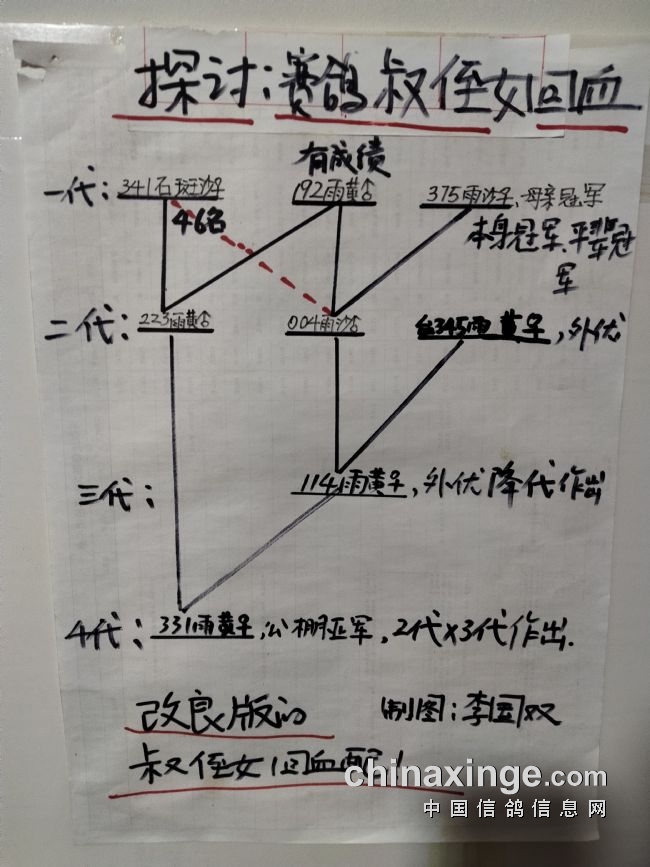 探讨:赛鸽叔侄女回血
有成绩
一代: 341石斑沙 192雨黄 375雨沙,母亲冠军
46名
本身冠军.平辈冠
军
二代: 223雨黄 004雨沙 345雨黄,外优
三代: 114雨黄,外优降代作出
4代: 331雨黄,公棚亚军,2代×3代作出.
改良版的 制图:李国双
叔侄女回血配!
chinaxinge.com
中国信鸽信息网